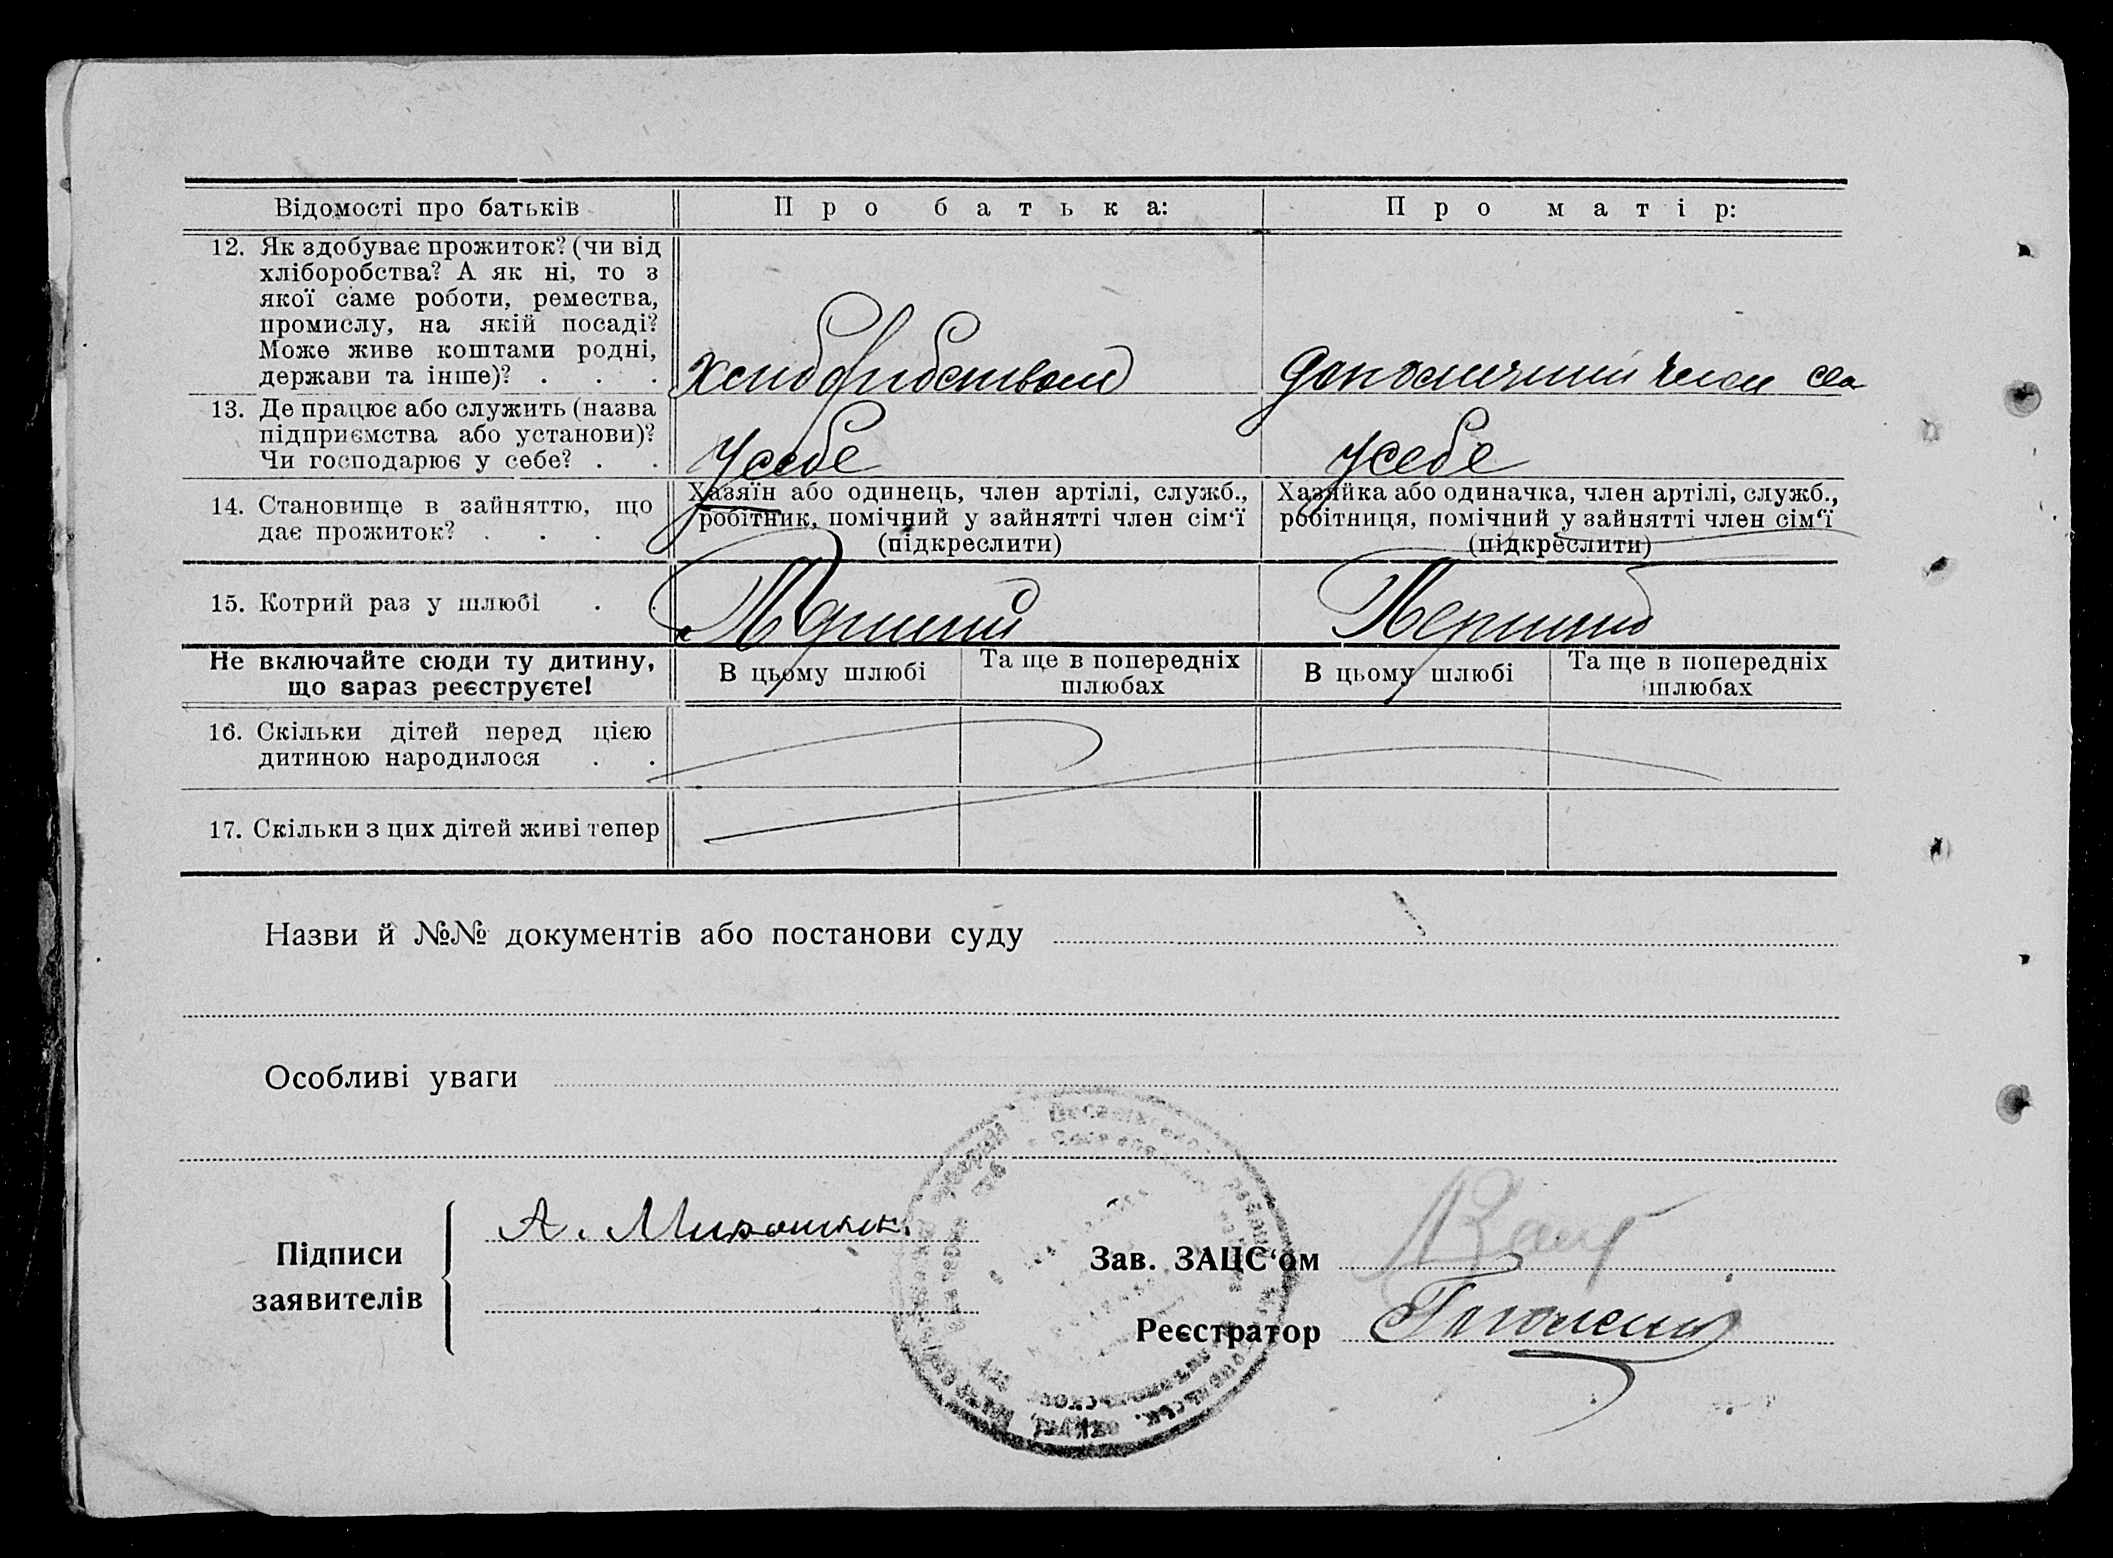 Відомості про батьків
Про батька:
Про матір:
12. Як здобуває прожиток? (чи від
хліборобства? А як ні, то з
якої саме роботи, ремества,
промислу, на якій посаді?
Може живе коштами родні,
держави та інше)? . . .
хліборобством
допомічний член сем
13. Де працює або служить (назва
підприємства або установи)?
Чи господарює у себе? . .
У себе
У себе
14. Становище в зайняттю, що
дає прожиток? . . .
Хазяїн або одинець, член артілі, служб.,
робітник, помічний у зайнятті член сім‘ї
(підкреслити)
Хазяйка або одиначка, член артілі, служб.,
робітниця, помічний у зайнятті член сім‘ї
(підкреслити)
15. Котрий раз у шлюбі . .
Перший
Перший
Не включайте сюди ту дитину,
що зараз реєструєте!
В цьому шлюбі
Та ще в попередніх
шлюбах
В цьому шлюбі
Та ще в попередніх
шлюбах
16. Скільки дітей перед цією
дитиною народилося . .
17. Скільки з цих дітей живі тепер
Назви й №№ документів або постанови суду
Особливі уваги
Підписи
заявителів
А.
Зав. ЗАЦС‘ом
Реєстратор